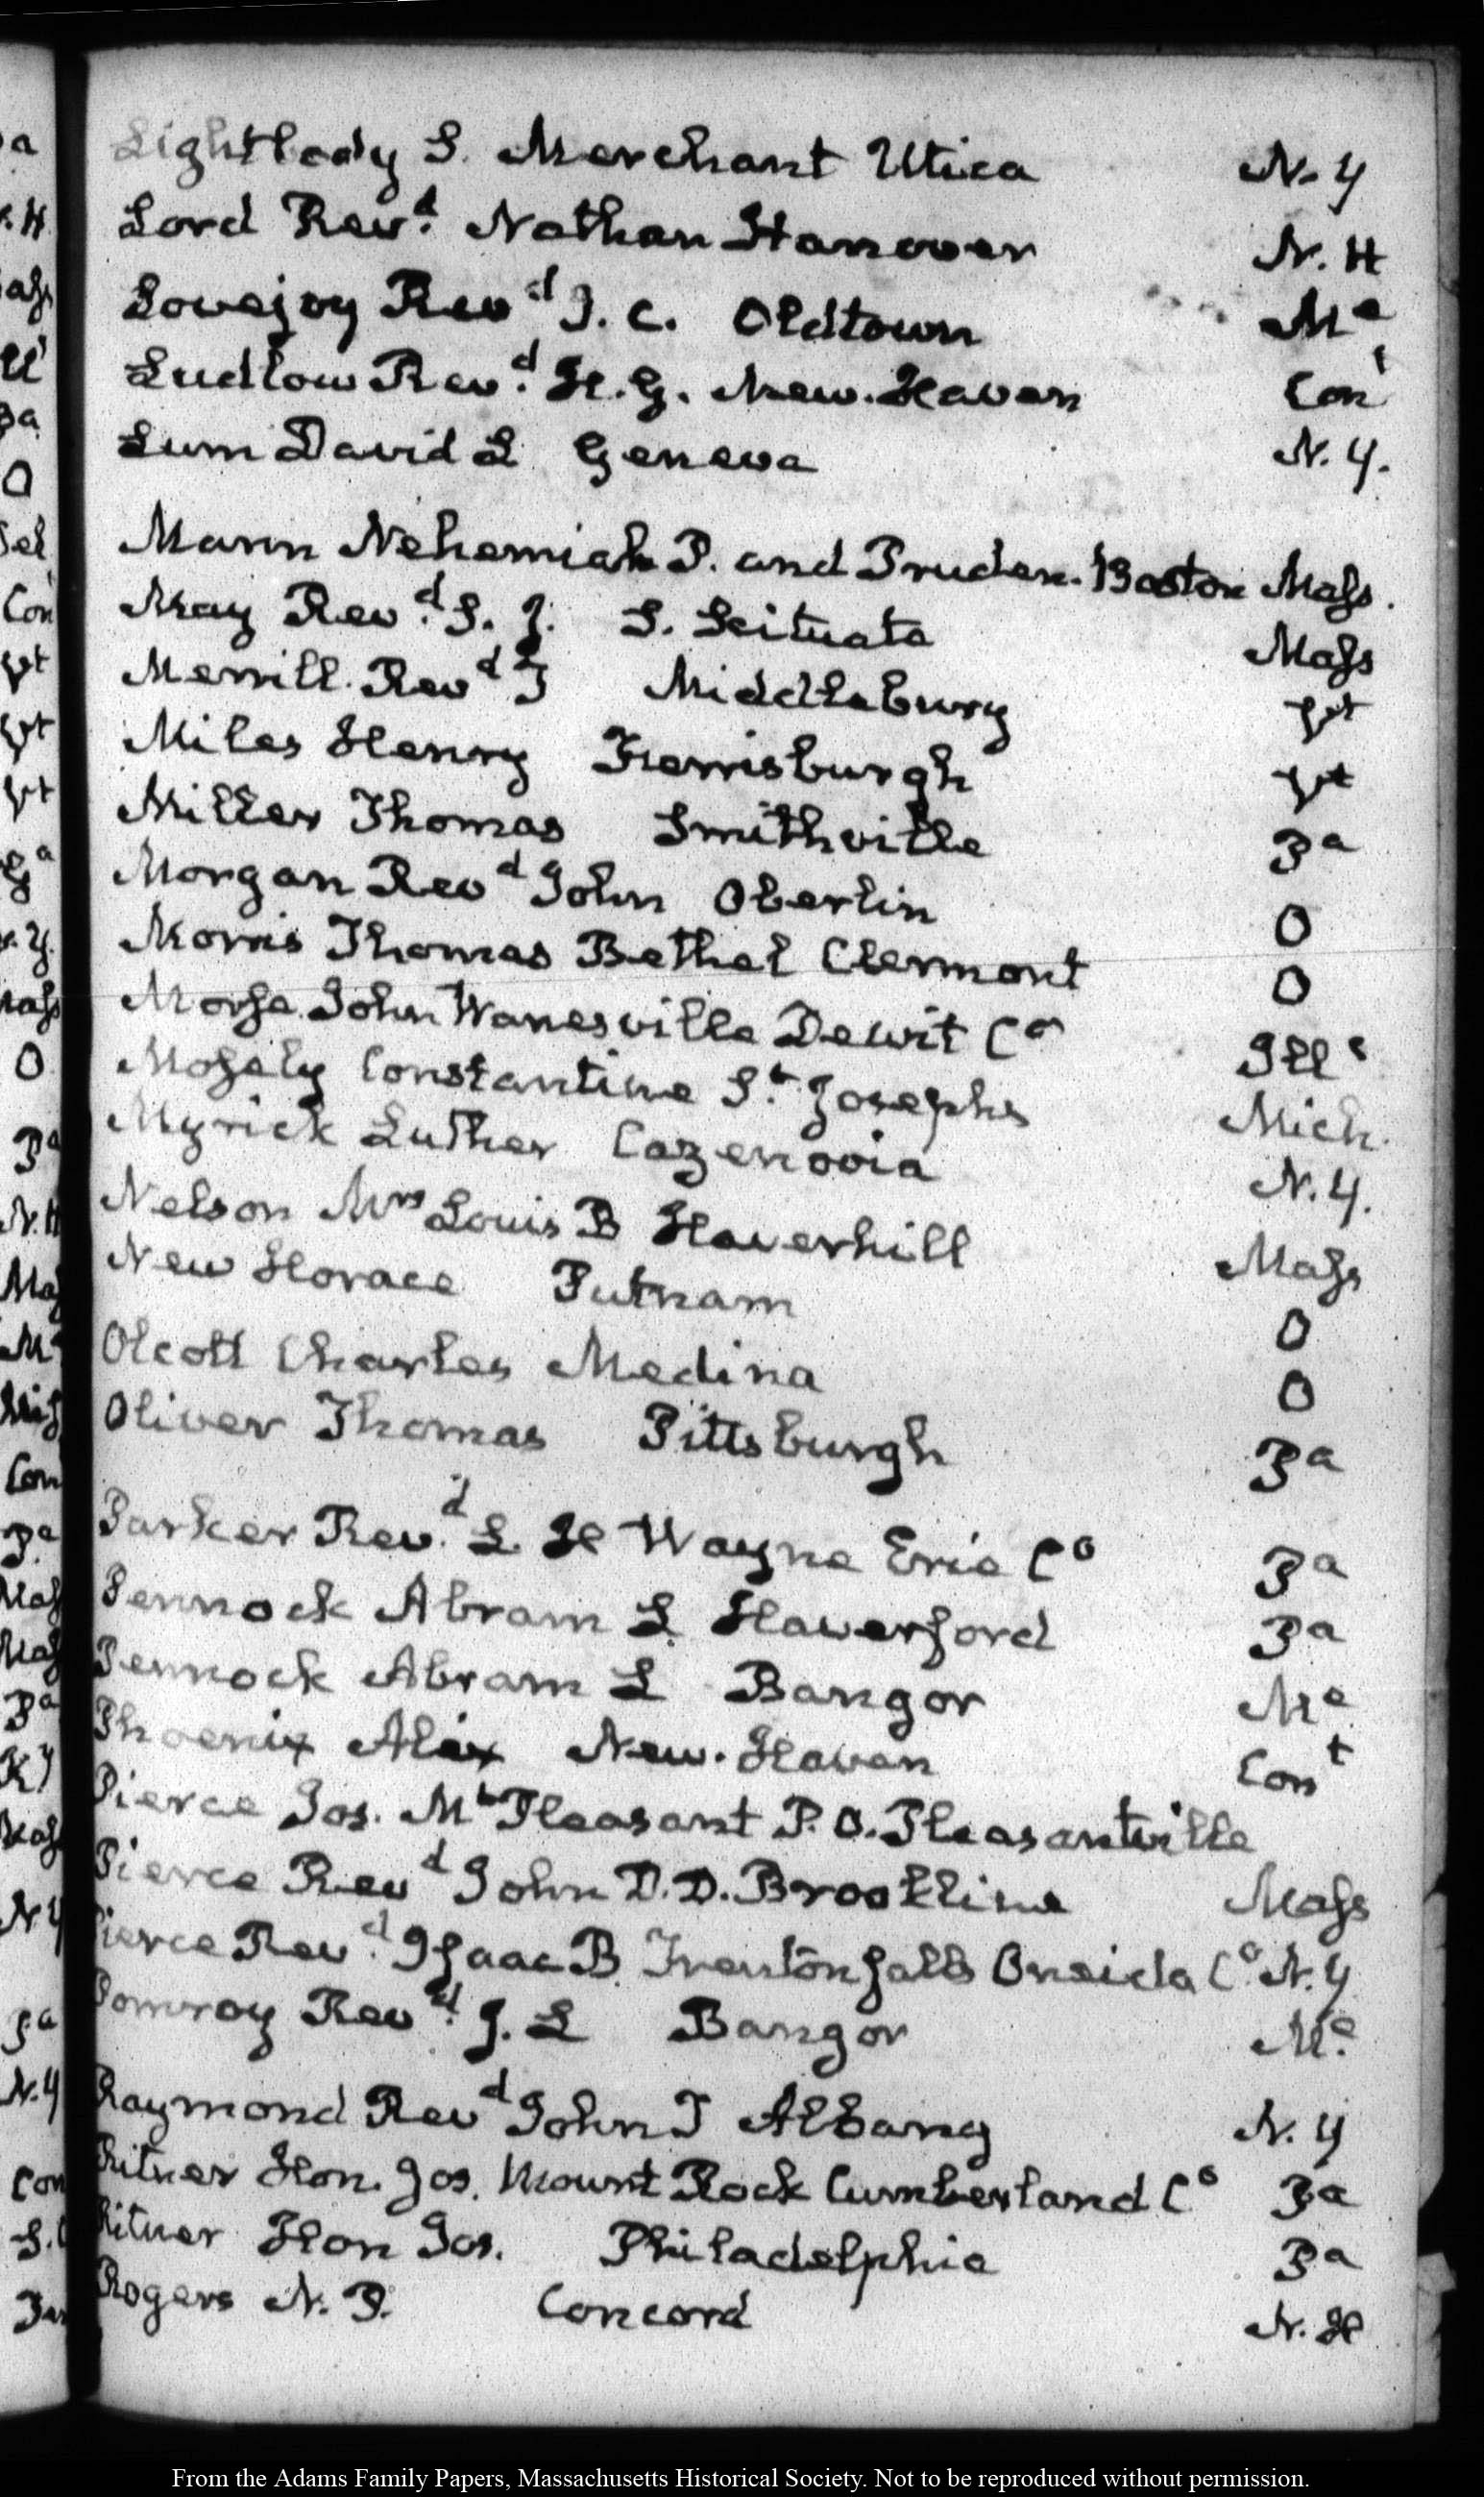 Lightbody S. Merchant Utica N. Y
Lord Revd. Nathan Hanover N. H
Lovejoy Revd J. C. Oldtown Me
Ludlow Revd. H. G. New-Haven Cont
Lum David L Geneva N. Y.
Mann Nehemiah P. and Pruden. Boston Mass.
May Revd. S. J. S. Scituate Mass
Merrill Revd T Middlebury Vt
Miles Henry Ferrisburgh Vt
Miller Thomas Smithville Pa
Morgan Revd John Oberlin O
Morris Thomas Bethel Clermont O
Morse John Wanesville Dewit Co Ills
Mosely Constantine St. Josephs Mich.
Myrick Luther Cazenovia N. Y.
Nelson Mrs Louis B Haverhill Mass
New Horace Putnam O
Olcott Charles Medina O
Oliver Thomas Pittsburgh Pa
Parker Revd. L. H Wayne Erie Co Pa
Pennock Abram L Haverford Pa
Pennock Abram L Bangor Me
Phoenix Alex New-Haven Cont
Pierce Jos. Mt Pleasant P. O. Pleasantville
Pierce Revd John D. D. Brookline Mass
Pierce Revd. Isaac B Trenton falls Oneida Co N. Y
Pomroy Revd. J. L Bangor Me.
Raymond Revd John T Albany N. Y
Ritner Hon. Jos. Mount Rock Cumberland Co Pa
Ritner Hon Jos. Philadelphia Pa
Rogers N. P. Concord N. H
From the Adams Family Papers, Massachusetts Historical Society. Not to be reproduced without permission.